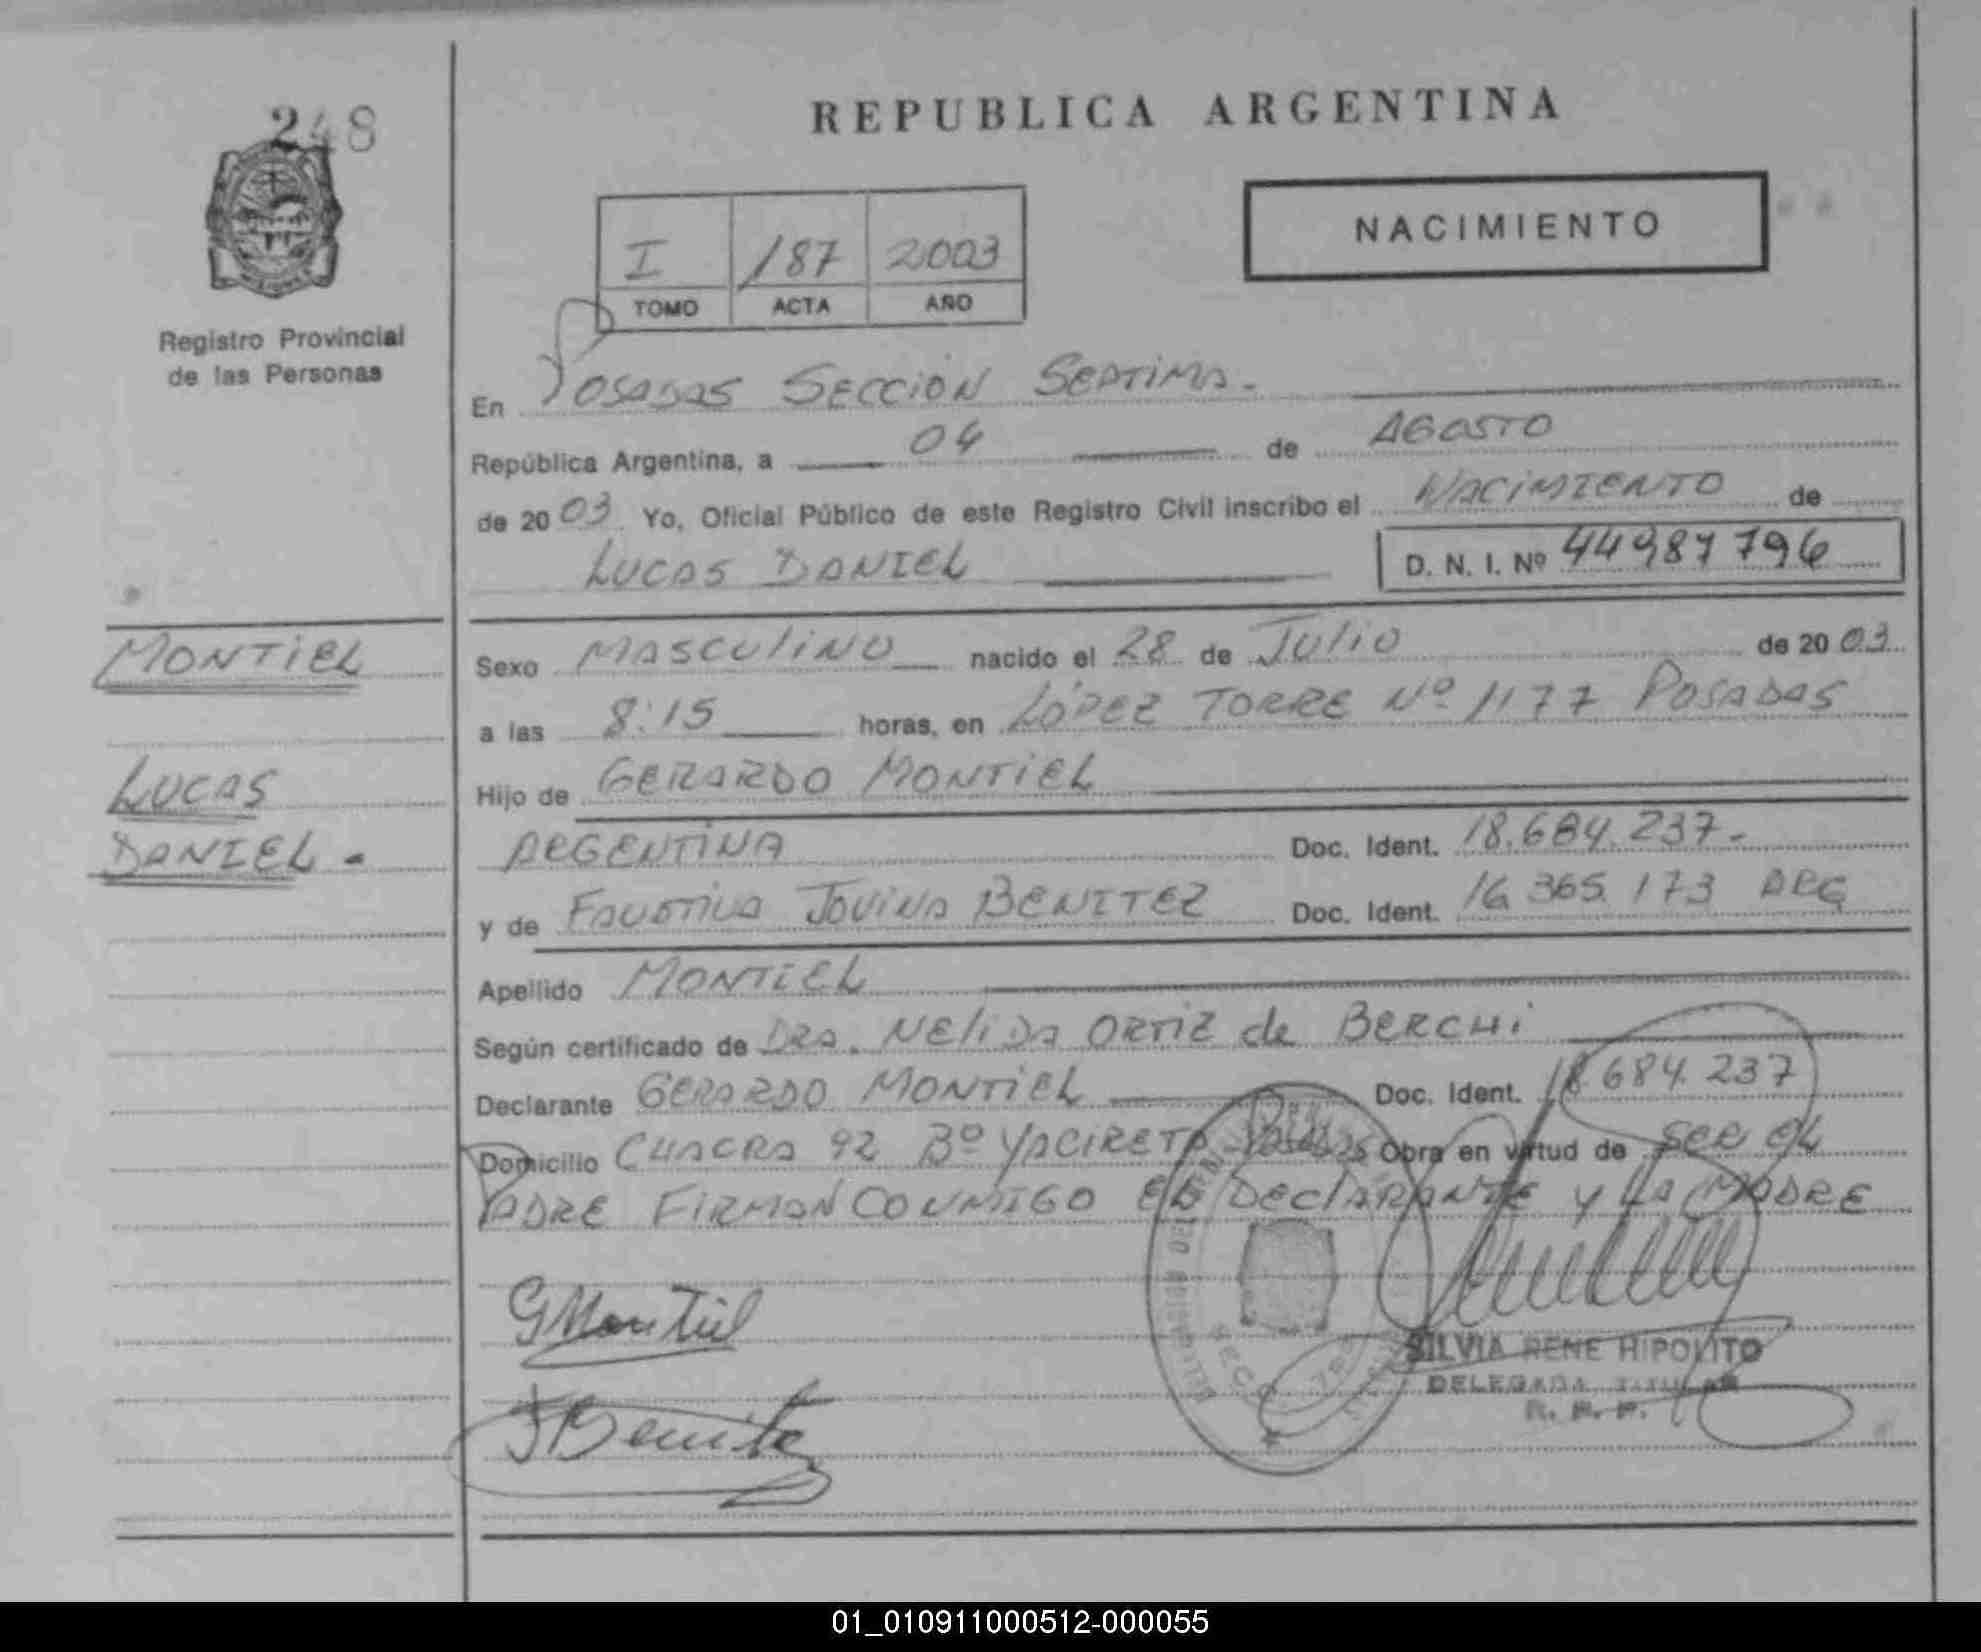 248
REPUBLICA ARGENTINA
NACIMIENTO
I 187 2003
TOMO ACTA AÑO
Registro Provincial
de las Personas
En POSADAS SECCION SEPTIMA.-
República Argentina, a 04 de AGOSTO
de 2003 Yo, Oficial Público de este Registro Civil inscribo el NACIMIENTO de
LUCAS DANIEL D. N. I. Nº 44987796
MONTIEL
LUCAS
DANIEL.-
Sexo MASCULINO nacido el 28 de JULIO de 2003
a las 8:15 horas, en LÓPEZ TORRE Nº 1177 POSADAS
Hijo de GERARDO MONTIEL
ARGENTINA Doc. Ident. 18.684.237-
y de FAUSTINA JOVINA BENITEZ Doc. Ident. 16 365.173 ARG
Apellido MONTIEL
Según certificado de DRA. NELIDA ORTIZ de BERCHI
Declarante GERARDO MONTIEL Doc. Ident. 18.684.237
Domicilio CHACRA 92 Bº YACIRETA Obra en virtud de SER EL
PADRE FIRMAN CONMIGO EL DECLARANTE Y LA MADRE
GMontiel
SILVIA RENE HIPOLITO
DELEGADA TITULAR
R. P. P.
JBenitez
01_010911000512-000055